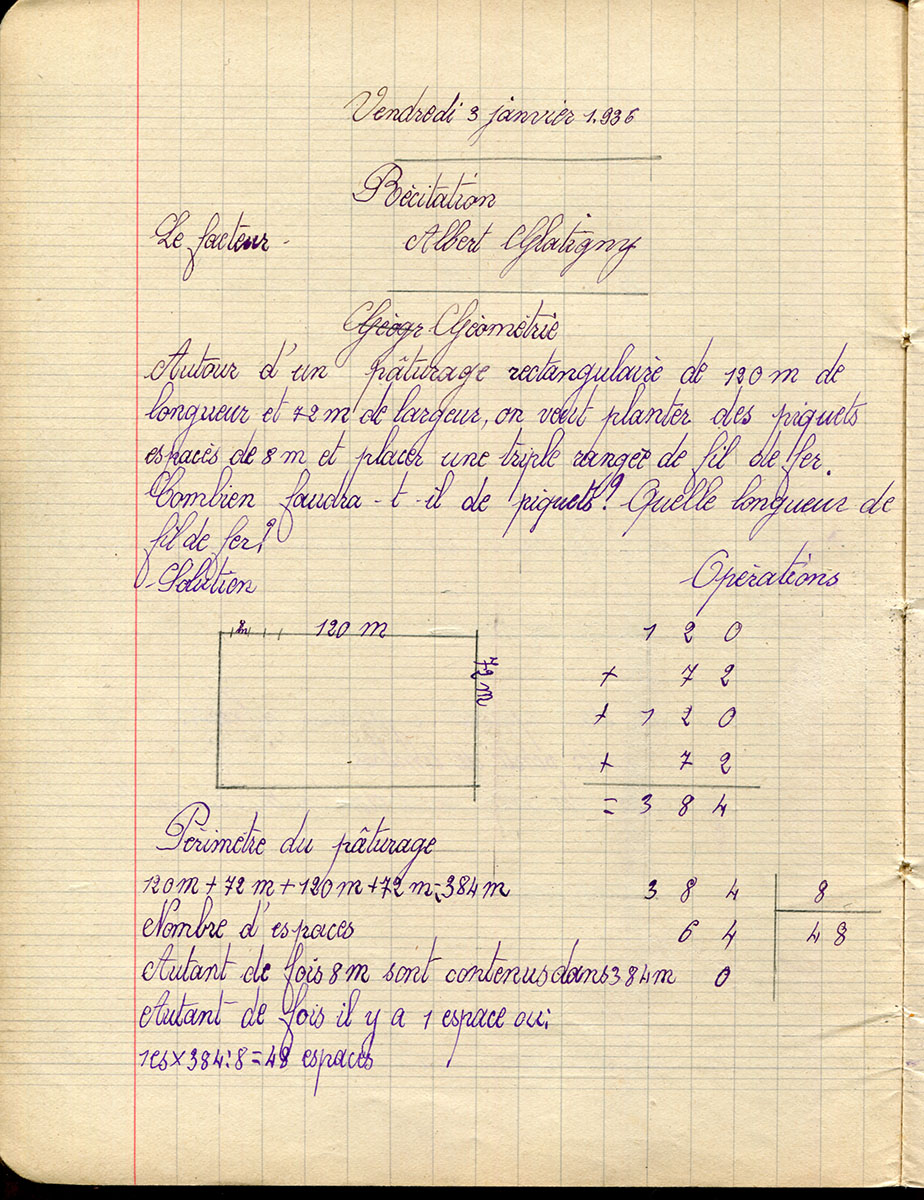 Vendredi 3 janvier 1.936
Récitation
Le facteur - Albert Glatigny
Géogr Géométrie
Autour d'un pâturage rectangulaire de 120 m de
longueur et 72 m de largeur, on veut planter des piquets
espacés de 8 m et placer une triple rangée de fil de fer.
Combien faudra-t-il de piquets? Quelle longueur de
fil de fer?
Solution
Opérations
8m 120 m
72 m
1 2 0
+ 7 2
+ 1 2 0
+ 7 2
= 3 8 4
Périmètre du pâturage
120m + 72 m + 120m + 72 m = 384 m
Nombre d'espaces
Autant de fois 8 m sont contenus dans 384 m
Autant de fois il y a 1 espace ou:
1es x 384 : 8 = 48 espaces
3 8 4 8
6 4 4 8
0